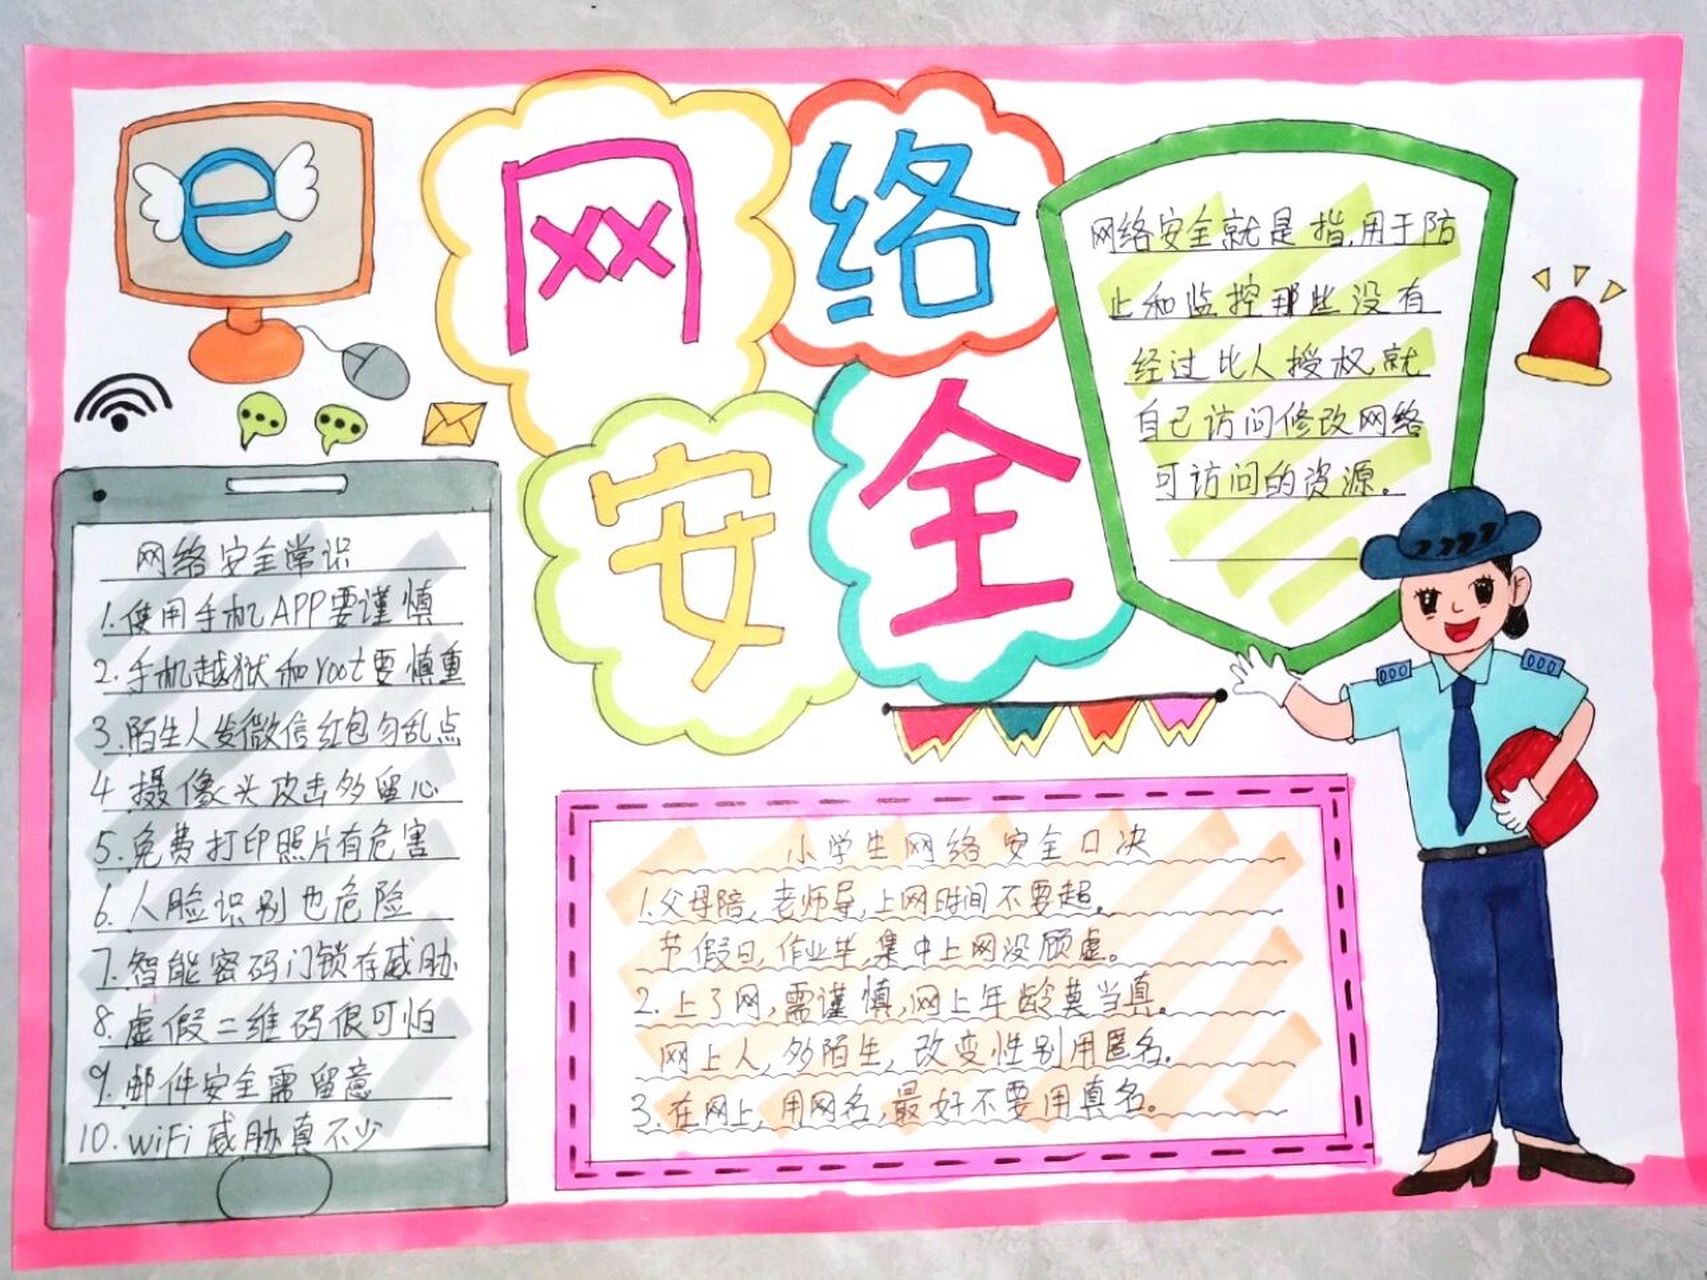 e
网络
安全
网络安全就是指,用于防
止和监控那些没有
经过比人授权就
自己访问修改网络
可访问的资源。
网络安全常识
1.使用手机APP要谨慎
2.手机越狱和root要慎重
3.陌生人发微信红包勿乱点
4 摄像头攻击多留心
5.免费打印照片有危害
6.人脸识别也危险
7.智能密码门锁存威胁
8.虚假二维码很可怕
9.邮件安全需留意
10.WiFi威胁真不少
小学生网络安全口决
1.父母陪,老师导,上网时间不要超。
节假日,作业毕,集中上网没顾虑。
2.上了网,需谨慎,网上年龄莫当真。
网上人,多陌生,改变性别用匿名。
3.在网上,用网名,最好不要用真名。